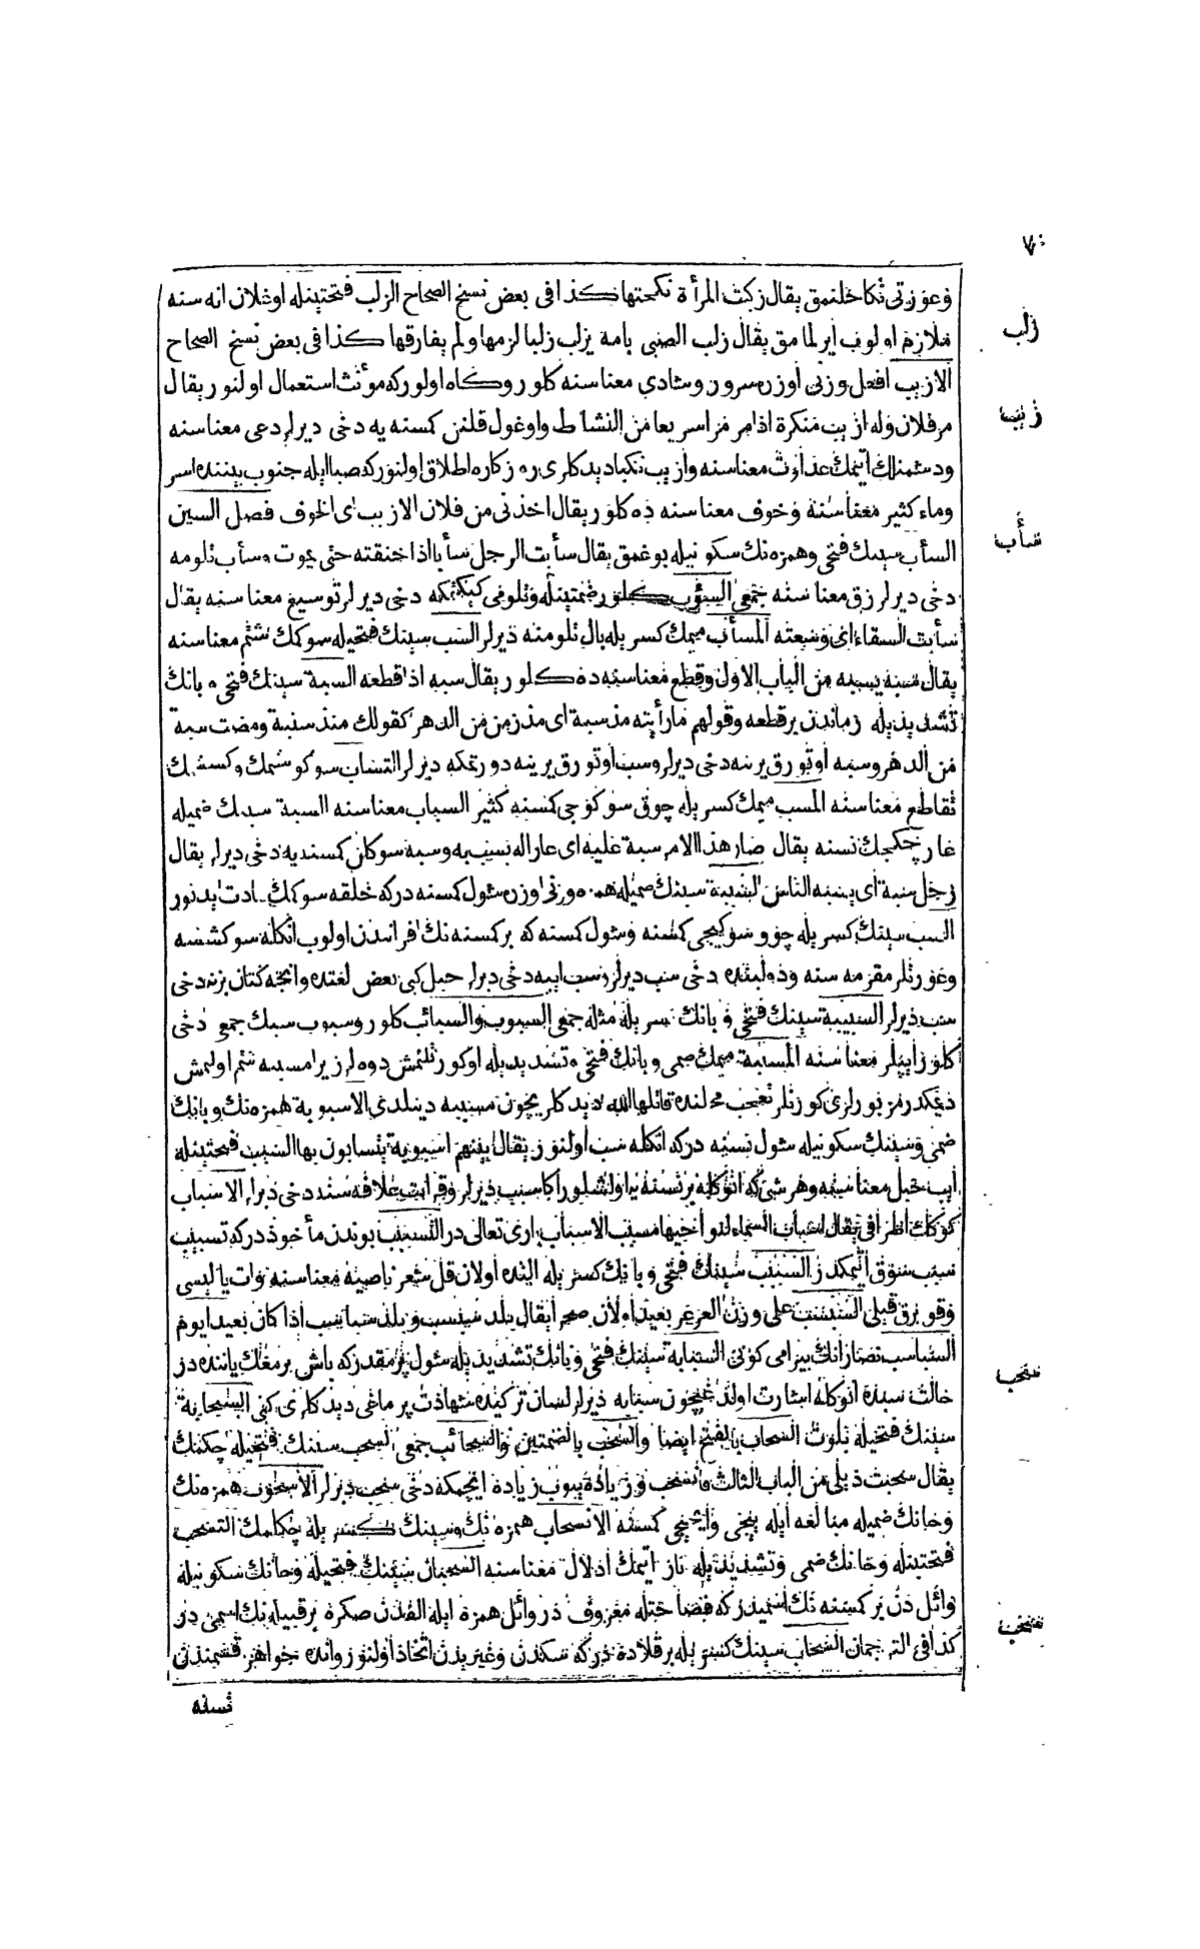 ٧٠
وعورتی نکاحلنمق یقال زکبت المرأة نکحتها کذا فی بعض نسخ الصحاح الزلب فتحتینله اوغلان انه سنه
زلب
ملازم اولوب ایرلمامق یقال زلب الصبی بامه یزلب زلبا لزمها ولم یفارقها کذا فی بعض نسخ الصحاح
الازیب افعل وزنی اوزره سرور وشادی معناسنه کلور وکاه اولور که مؤنث استعمال اولنور یقال
زیب
مر فلان وله ازیب منکرة اذا مر مرا سریعا من النشاط واوغول قلنن کمسنه یه دخی دیرلر دعی معناسنه
ودشمنلك اتیمك عداوت معناسنه وازیب نکبا دیدکلری روزکاره اطلاق اولنور که صبا ایله جنوب بیننده اسر
وماء کثیر معناسنه وخوف معناسنه ده کلور یقال اخذنی من فلان الازیب ای الخوف فصل السین
سأب
السأب سینك فتحی وهمزه نك سکونیله بوغمق یقال سأبت الرجل سأبا اذا خنقته حتی یموت وسأب تلومه
دخی دیرلر زق معناسنه جمعی السؤب کلور ضمتینله وتلومی کیکتمکه دخی دیرلر توسیع معناسنه یقال
سأبت السقاء ای وسعته المسأب میمك کسریله بال تلومنه دیرلر السب سینك فتحیله سوکمك شتم معناسنه
یقال سبه یسبه من الباب الاول وقطع معناسنه ده کلور یقال سبه اذا قطعه السبة سینك فتحی وبانك
تشدیدیله زماندن بر قطعه وقولهم ما رأیته مذ سبة ای مذ زمن من الدهر کقولك منذ سنبة ومضت سبة
من الدهر وسبه اوتورق یرینه دخی دیرلر وسب اوتورق یرینه دورتمکه دیرلر التساب سوکوشمك وکسشمك
تقاطع معناسنه المسب میمك کسریله چوق سوکوجی کمسنه کثیر السباب معناسنه السبة سینك ضمیله
عار چکجك نسنه یقال صار هذا الامر سبة علیه ای عارا له یسب به وسبه سوکلن کمسنه یه دخی دیرلر یقال
رجل سبة ای یسبه الناس السببة سینك ضمیله همزه وزنی اوزره شول کمسنه درکه خلقه سوکمك عادت ایدنور
السب سینك کسریله چوق سوکیجی کمسنه وشول کمسنه که بر کمسنه نك اقرانندن اولوب انکله سوکششه
وعورتلر مقرمه سنه ودولبنده دخی سب دیرلر وسب ایپه دخی دیرلر حبل کبی بعض لغتده وانجه کتان بزنه دخی
سب دیرلر السبیبة سینك فتحی وبانك کسریله مثله جمعی السبوب والسبائب کلور وسبوب سبك جمعی دخی
کلور ایپلر معناسنه المسببة میمك ضمی وبانك فتحی وتشدیدیله اوکورتلنمش دوه لر زیرا مسببه شتم اولنمش
دیمکدر رمز بو لرزی کورنلر تعجب محلنده قاتلها الله دیدکلریچون مسببه دینلدی الاسبوبة همزه نك وبانك
ضمی وسینك سکونیله شول نسنه درکه انکله سب اولنور یقال بینهم اسبوبة یتسابون بها السبب فتحتینله
ایپ حبل معناسنه وهر شی که انوکله بر نسنه یه اولشلور اکا سبب دیرلر وقرابت علاقه سنه دخی دیرلر الاسباب
کوکك اطرافی یقال اسباب السماء لنواحیها مسبب الاسباب باری تعالی در التسبیب بوندن مأخوذدر که تسبیب
سبب سوق اتیمکدر السبیب سینك فتحی وبانك کسریله الننده اولان قل شعر ناصیه معناسنه وات یالیسی
وقویرق قیلی السبسب علی وزن العرعر بعید اولان صحرا یقال بلد سبسب وبلد سباسب اذا کان بعیدا یوم
السباسب نصارانك بیرامی کونی السبابه سینك فتحی وبانك تشدیدیله شول برمقدر که باش برمغك یاننده در
سحب
حالت سبده انوکله اشارت اولندوغیچون سبابه دیرلر لسان ترکیده شهادت پرماغی دیدکلری کبی السحابة
سینك فتحیله بلوت السحاب بالفتح ایضا والسحب بالضمتین والسحائب جمعی السحب سینك فتحیله چکمك
یقال سحبت ذیلی من الباب الثالث فانسحب وزیاده ییوب زیاده ایچمکه دخی سحب دیرلر الاسحوب همزه نك
وحانك ضمیله مبالغه ایله ییجی وایچیجی کمسنه الانسحاب همزه نك ونونك کسریله چکلمك التسحب
فتحتینله وحانك ضمی وتشدیدیله ناز اتیمك ادلال معناسنه السحبان سینك فتحیله وحانك سکونیله
وائل دن بر کمسنه نك اسمیدر که فصاحتله معروف در وائل همزه ایله الفدن صکره بر قبیله نك اسمی در
سخب
کذا فی الترجمان السخاب سینك کسریله بر قلاده در که سکدن وغیریدن اتخاذ اولنور وانده جواهر قسمندن
نسنه